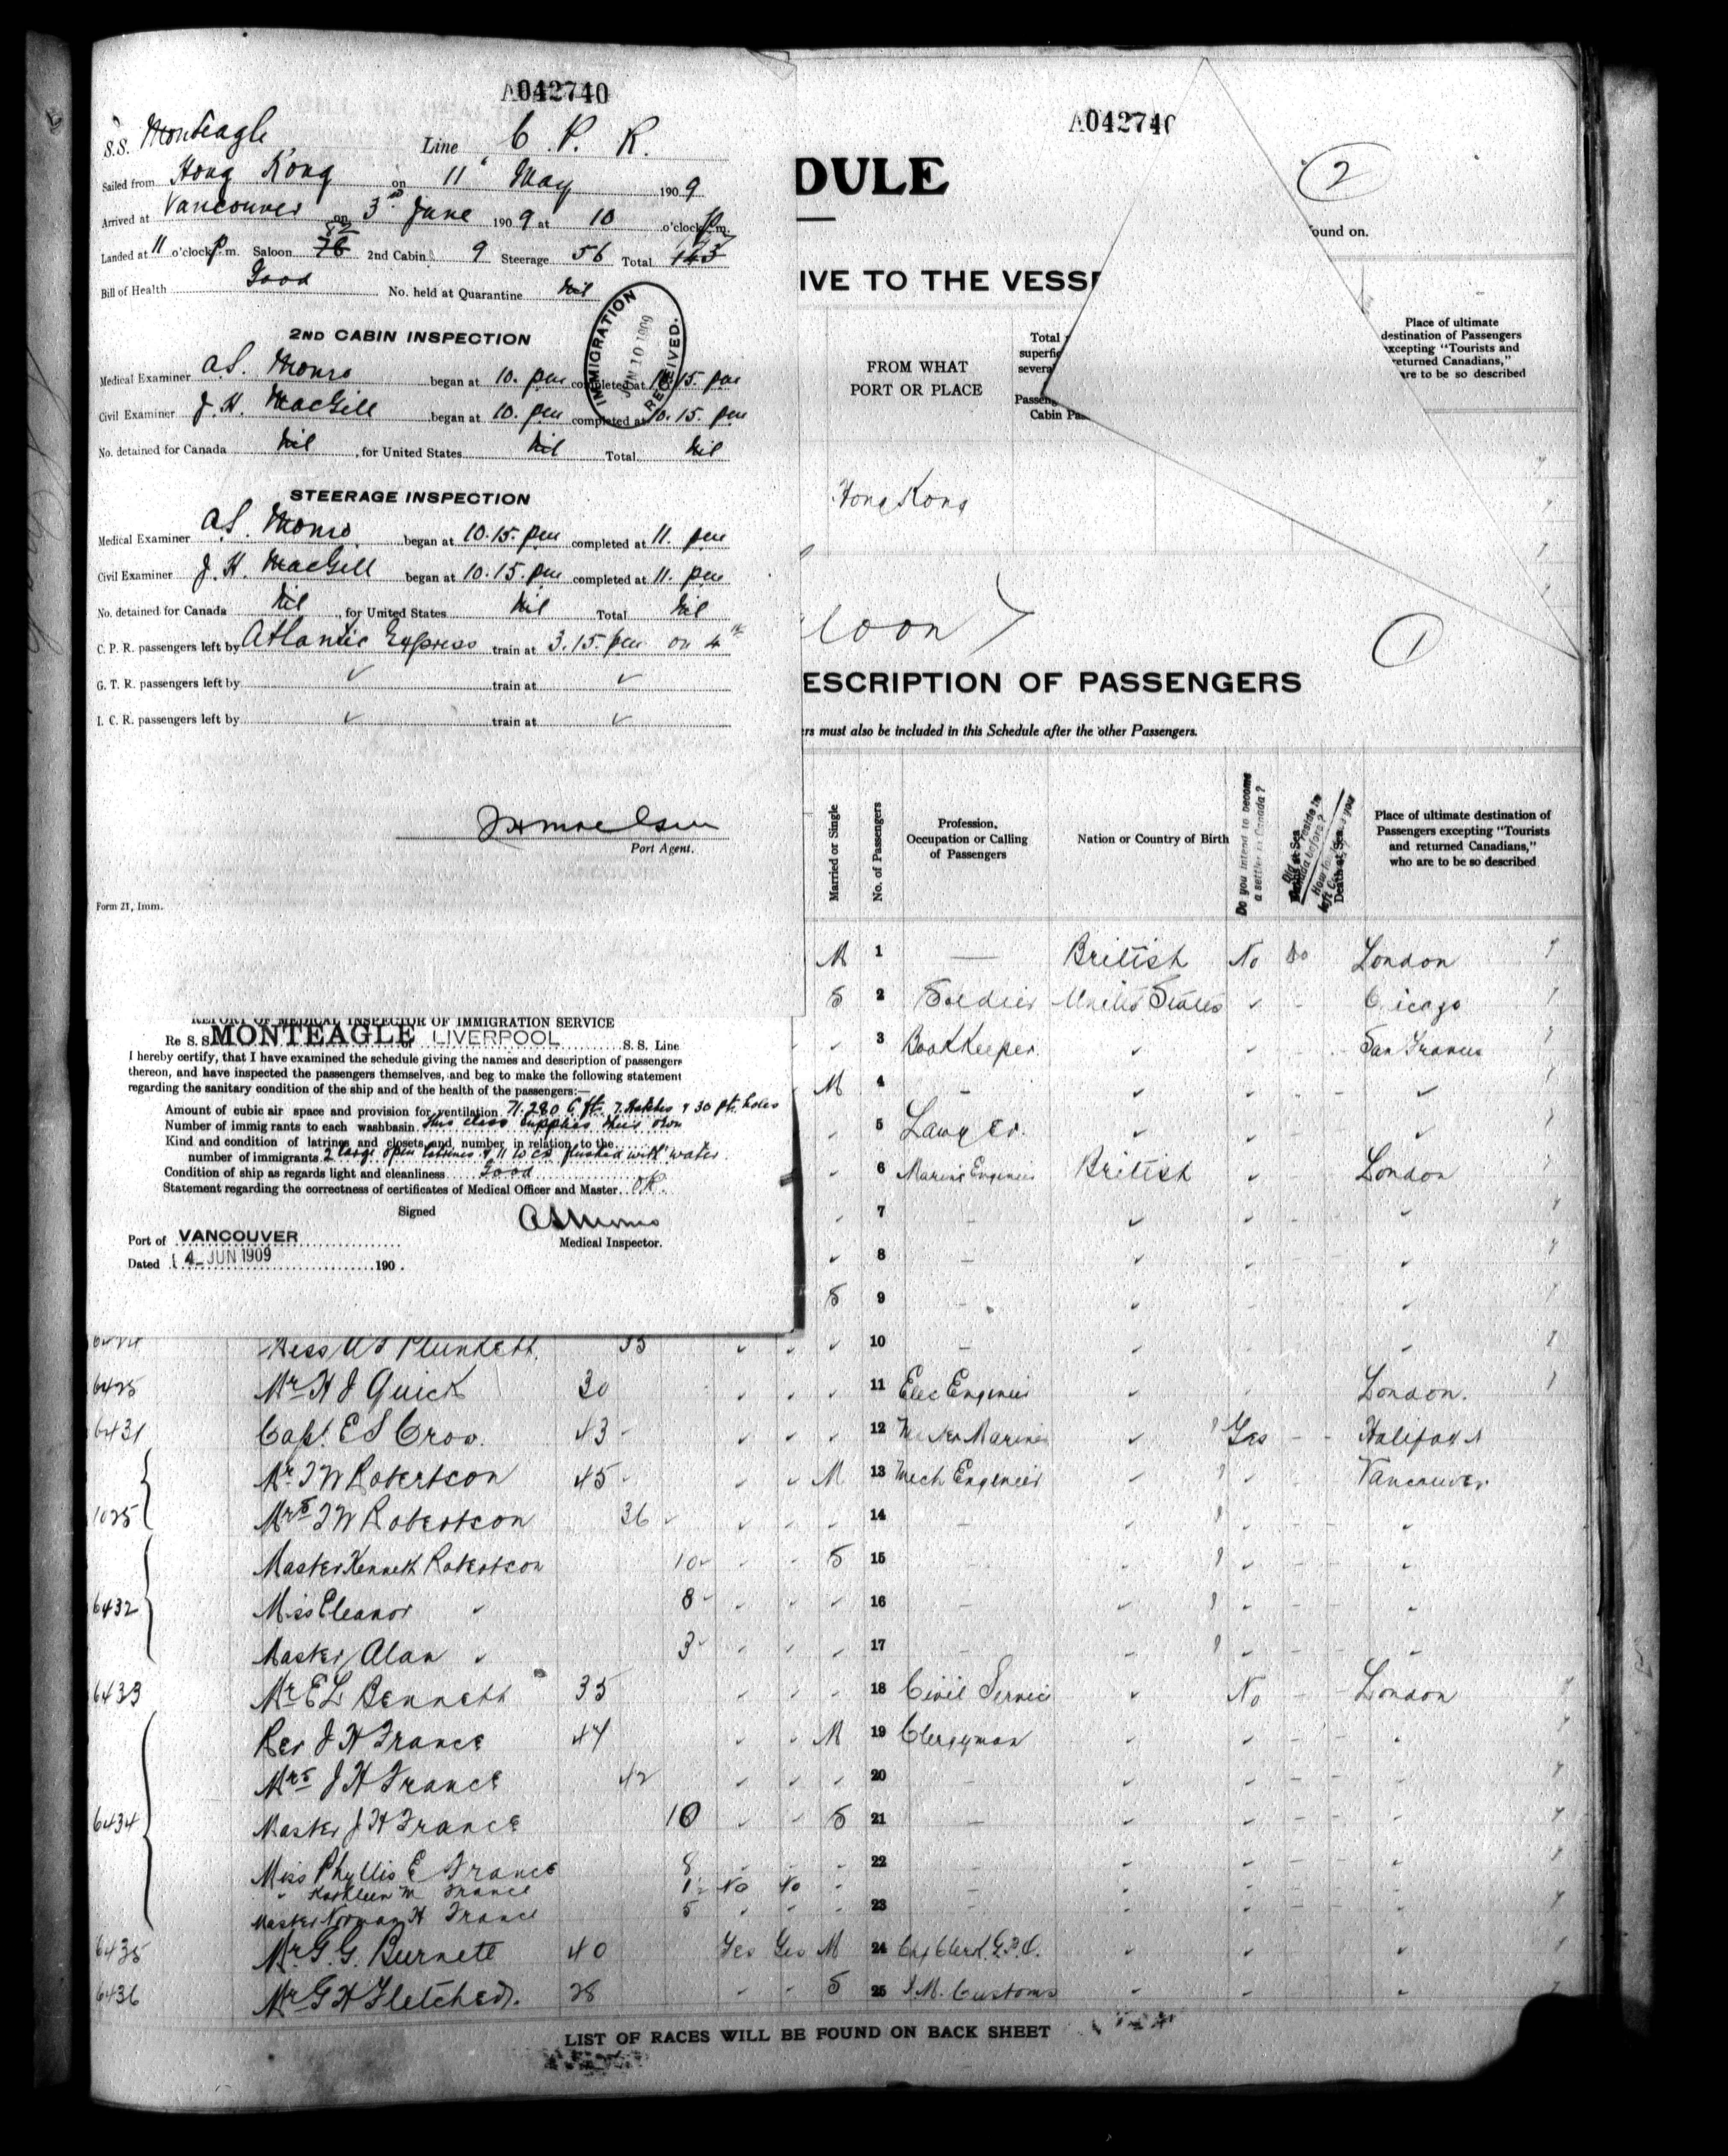 A042740
S.S. Monteagle Line C. P. R.
Sailed from Hong Kong on 11" May 1909
Arrived at Vancouver on 3rd June 1909 at 10 o'clock p.m.
52
Landed at 11 o'clock p.m. Saloon 78 2nd Cabin 9 Steerage 56 Total 143
Bill of Health Good No. held at Quarantine Nil
IMMIGRATION JUN 10 1909 RECEIVED.
2ND CABIN INSPECTION
Medical Examiner A.S. Monro began at 10. pm completed at 10.15. pm
Civil Examiner J. H. MacGill began at 10. pm completed at 10.15. pm
No. detained for Canada Nil, for United States Nil Total Nil
STEERAGE INSPECTION
Medical Examiner A.S. Monro began at 10.15. pm completed at 11. pm
Civil Examiner J. H. MacGill began at 10.15. pm completed at 11. pm
No. detained for Canada Nil, for United States Nil Total Nil
C. P. R. passengers left by Atlantic Express train at 3.15. pm on 4th
G. T. R. passengers left by ✓ train at ✓
I. C. R. passengers left by ✓ train at ✓
Port Agent.
Form 21, Imm.
REPORT OF MEDICAL INSPECTOR OF IMMIGRATION SERVICE
Re S. S. MONTEAGLE of LIVERPOOL S. S. Line
I hereby certify, that I have examined the schedule giving the names and description of passengers
thereon, and have inspected the passengers themselves, and beg to make the following statement
regarding the sanitary condition of the ship and of the health of the passengers:—
Amount of cubic air space and provision for ventilation 71.280 C ft. 7 Hatches & 30 pt. holes
Number of immigrants to each washbasin This class supplies their own
Kind and condition of latrines and closets and number in relation to the
number of immigrants 2 large open latrines & 11 W Cs flushed with water
Condition of ship as regards light and cleanliness Good
Statement regarding the correctness of certificates of Medical Officer and Master OK.
Signed ASMonro
Medical Inspector.
Port of VANCOUVER
Dated 4 JUN 1909 190 .
A04274
DULE
2
ound on.
IVE TO THE VESS
FROM WHAT
PORT OR PLACE
Total
superfi
severa
Passeng
Cabin Pa
Place of ultimate
destination of Passengers
xcepting "Tourists and
returned Canadians,"
are to be so described
Hong Kong
loon
1
ESCRIPTION OF PASSENGERS
rs must also be included in this Schedule after the other Passengers.
Married or Single
No. of Passengers
Profession,
Occupation or Calling
of Passengers
Nation or Country of Birth
Do you intend to become
a settler in Canada ?
Place of ultimate destination of
Passengers excepting "Tourists
and returned Canadians,"
who are to be so described
M 1 — British No London
S 2 Soldier United States ✓ - Chicago
✓ 3 BookKeeper ✓ ✓ San Francis
M 4 - ✓ ✓ ✓
✓ 5 Lawyer ✓ ✓ ✓
✓ 6 Marine Engineer British ✓ London
✓ 7 - ✓ ✓ ✓
✓ 8 - ✓ ✓ ✓
S 9 - ✓ ✓ ✓
Miss Plunkett 35 ✓ ✓ ✓ 10 - ✓ ✓ ✓
6425 Mr H J Quick 30 ✓ ✓ ✓ 11 Elec Engineer ✓ London.
6431 Capt. E S 43 ✓ ✓ ✓ 12 Marine ✓ Yes - - Halifax
Mr J W Robertson 45 ✓ ✓ M 13 Mech Engineer ✓ ✓ Vancouver
1025 Mrs J W Robertson 36 ✓ ✓ ✓ 14 - ✓ ✓ - - ✓
Master Kenneth Robertson 10 ✓ ✓ S 15 ✓ ✓ - - ✓
6432 Miss Eleanor ✓ 8 ✓ ✓ ✓ 16 - ✓ ✓ - - ✓
Master Alan ✓ 3 ✓ ✓ ✓ 17 - ✓ ✓ - - ✓
6433 Mr E L Bennett 35 ✓ ✓ ✓ 18 Civil Service ✓ No - - London
Rev J H France 44 ✓ ✓ M 19 Clergyman ✓ ✓ - - ✓
Mrs J H France 42 ✓ ✓ ✓ 20 - ✓ ✓ - - ✓
6434 Master J H France 10 ✓ ✓ S 21 - ✓ ✓ - - ✓
Miss Phyllis E France 8 ✓ ✓ ✓ 22 - ✓ ✓ - - ✓
" Kathleen M France 1 No No ✓
Master Norman H France 5 ✓ ✓ ✓ 23 - ✓ ✓ - - ✓
6435 Mr. G. G. Burnett 40 Yes Yes M 24 Clerk G.P.O. ✓ ✓ ✓
6436 Mr G H Fletcher. 28 - - S 25 I.M. Customs ✓ ✓ ✓
LIST OF RACES WILL BE FOUND ON BACK SHEET